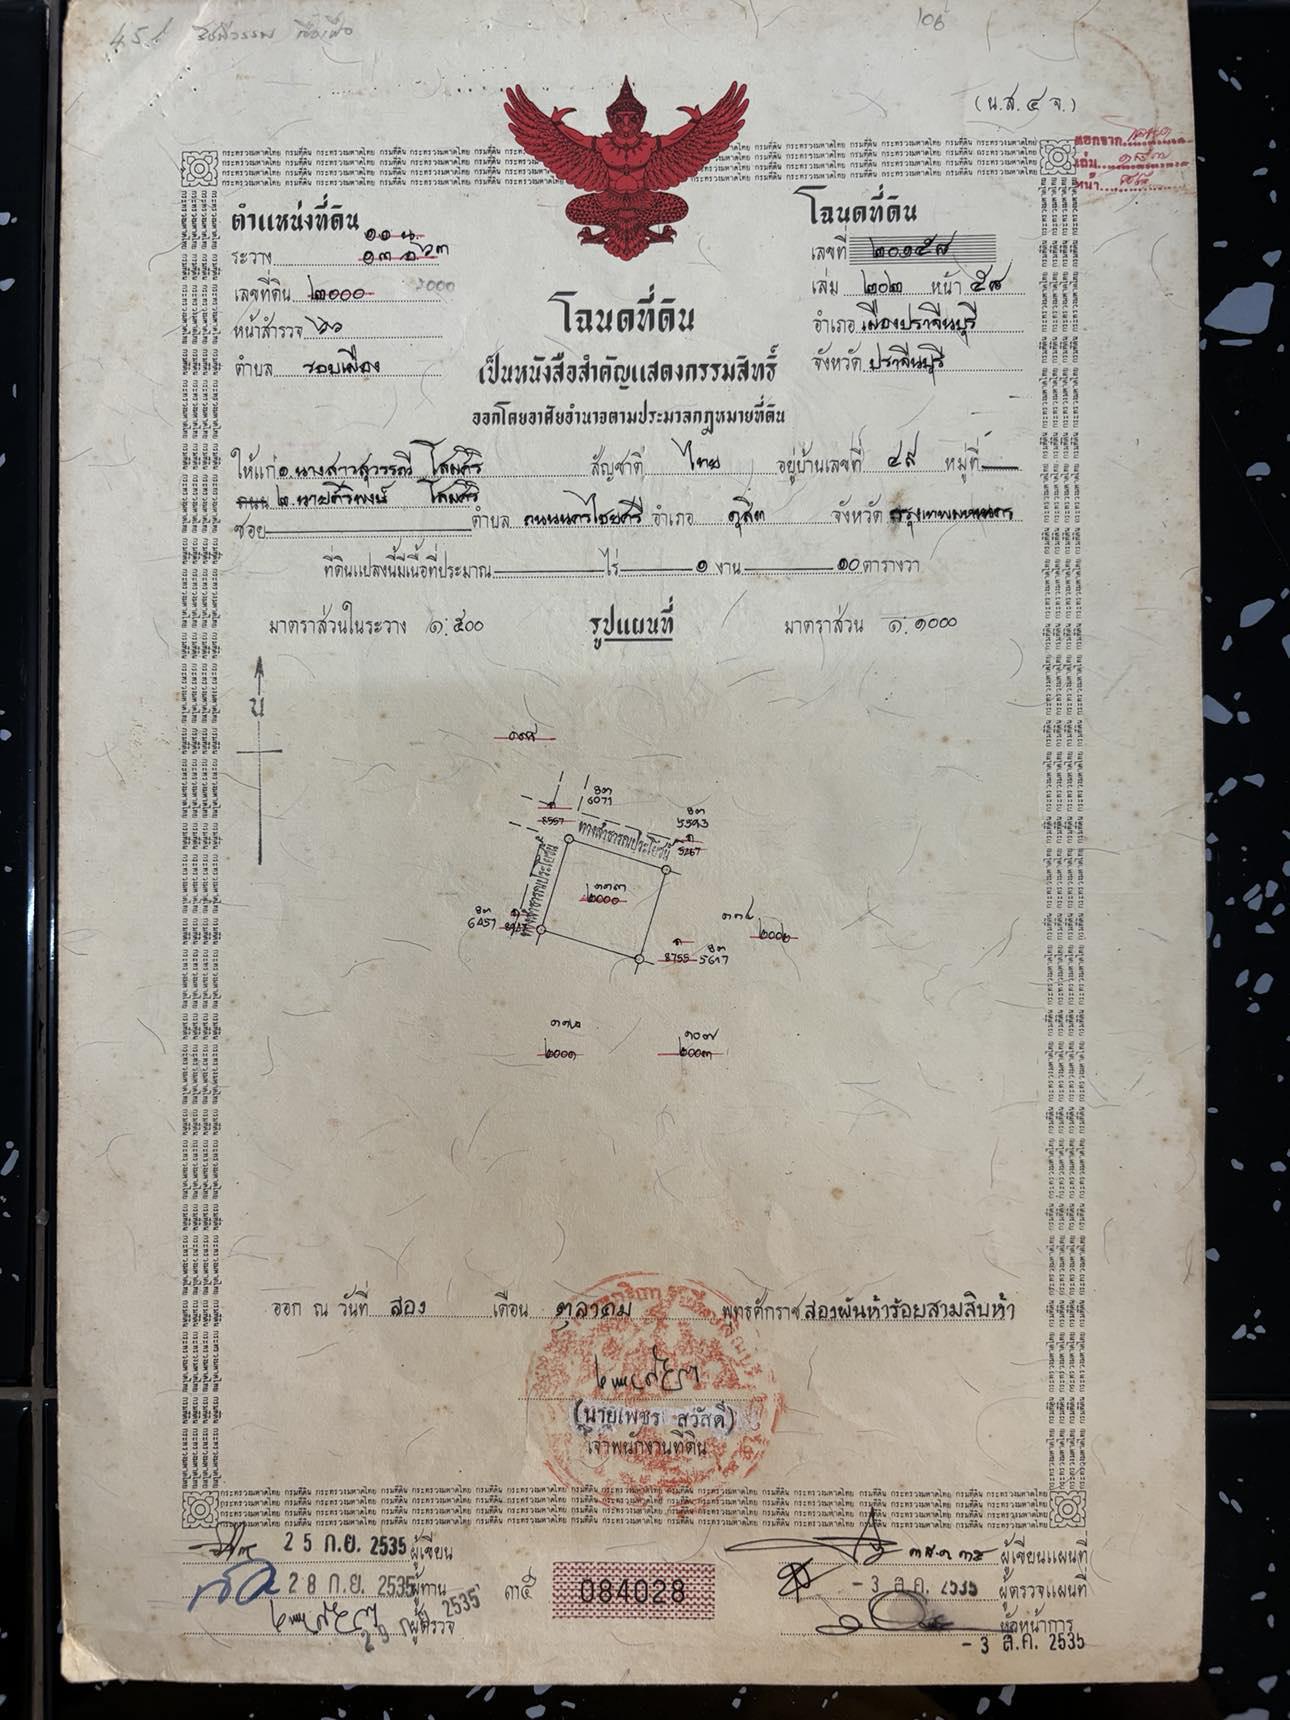 (น.ส. ๔ จ.)
ตำแหน่งที่ดิน
ระวาง
เลขที่ดิน ๒๐๐๐
หน้าสำรวจ ๖๖
ตำบล รอบเมือง
โฉนดที่ดิน
เลขที่ ๒๐๑๕๗
เล่ม ๒๐๒ หน้า ๕๗
อำเภอ เมืองปราจีนบุรี
จังหวัด ปราจีนบุรี
โฉนดที่ดิน
เป็นหนังสือสำคัญแสดงกรรมสิทธิ์
ออกโดยอาศัยอำนาจตามประมวลกฎหมายที่ดิน
ให้แก่ ๑. นางสาวสุวรรณี โสมศิริ สัญชาติ ไทย อยู่บ้านเลขที่ ๔๙ หมู่ที่
ถนน ๒. นายศิริพงษ์ โสมศิริ
ซอย ตำบล ถนนนครไชยศรี อำเภอ ดุสิต จังหวัด กรุงเทพมหานคร
ที่ดินแปลงนี้มีเนื้อที่ประมาณ ไร่ ๑ งาน ๑๐ ตารางวา
มาตราส่วนในระวาง ๑:๕๐๐ รูปแผนที่ มาตราส่วน ๑:๑๐๐๐
น
ทางสาธารณประโยชน์
ทางสาธารณประโยชน์
๒๐๐๐
6457
8755 5617
๒๐๐๑
๑๐๗
๒๐๐๓
ออก ณ วันที่ สอง เดือน ตุลาคม พุทธศักราช สองพันห้าร้อยสามสิบห้า
(นายเพชร สวัสดี)
เจ้าพนักงานที่ดิน
25 ก.ย. 2535 ผู้เขียน
28 ก.ย. 2535 ผู้ทาน
ผู้ตรวจ 2535
084028
ผู้เขียนแผนที่
-3 ส.ค. 2535 ผู้ตรวจแผนที่
หัวหน้าการ
-3 ส.ค. 2535